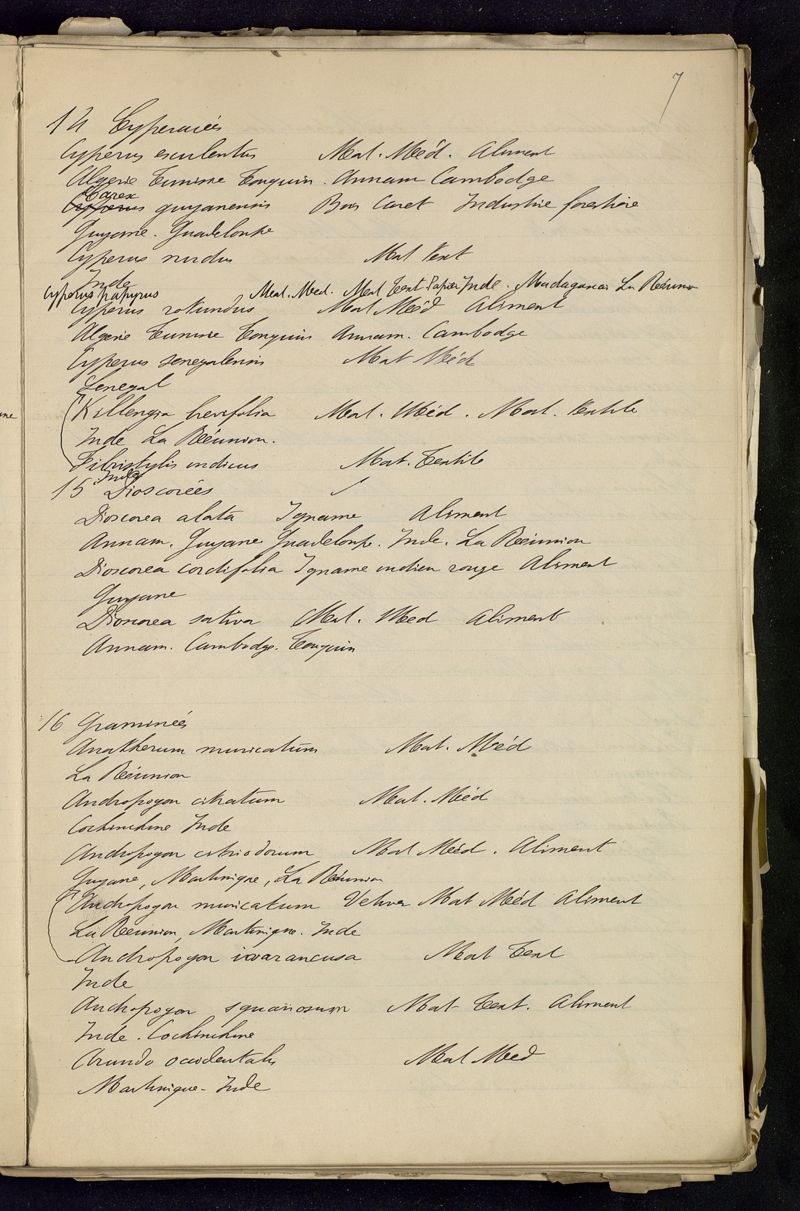 7
14 Cyperacées
Cyperus esculentus Mat. Méd. Aliment
Algerie Tunisie Tonquin. Annam Cambodge
Carex
Cyperus guyanensis Bois Caret Industrie forestière
Guyane. Guadeloupe
Cyperus nudus Mat Text
Inde
Cyperus papyrus Mat. Med. Mat Text Papier Inde. Madagascar La Réunion
Cyperus rotundus Mat Méd Aliment
Algerie Tunisie Tonquin Annam. Cambodge
Cyperus senegalensis Mat Méd
Senegal
Killengia brevifolia Mat. Méd. Mat. textile
Inde La Réunion.
Fibristylis indicus Mat. Textile
Inde
15 Dioscorées
Dioscorea alata Igname Aliment
Annam. Guyane Guadeloupe. Inde. La Réunion
Dioscorea cordifolia Igname indien rouge Aliment
Guyane
Dioscorea sativa Mat. Med Aliment
Annam. Cambodge. Tonquin
16 Graminées
Anatherum muricatum Mat. Méd
La Réunion
Andropogon citratum Mat. Méd
Cochinchine Inde
Andropogon citriodorum Mat Méd. Aliment
Guyane, Martinique, La Réunion
Andropogon muricatum Vetiver Mat Méd Aliment
La Réunion, Martinique. Inde
Andropogon iwarancusa Mat Text
Inde
Andropogon squarrosum Mat Text. Aliment
Inde. Cochinchine
Arundo occidentalis Mat Med
Martinique. Inde